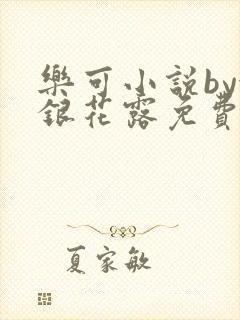 樂可小説by
銀花露免費
夏家敏